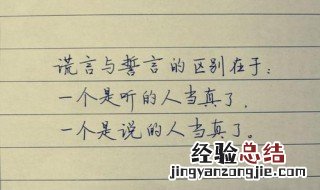 谎言与誓言的区别在于：
一个是听的人当真了，
一个是说的人当真了。
经验总结
www.jingyanzongjie.com